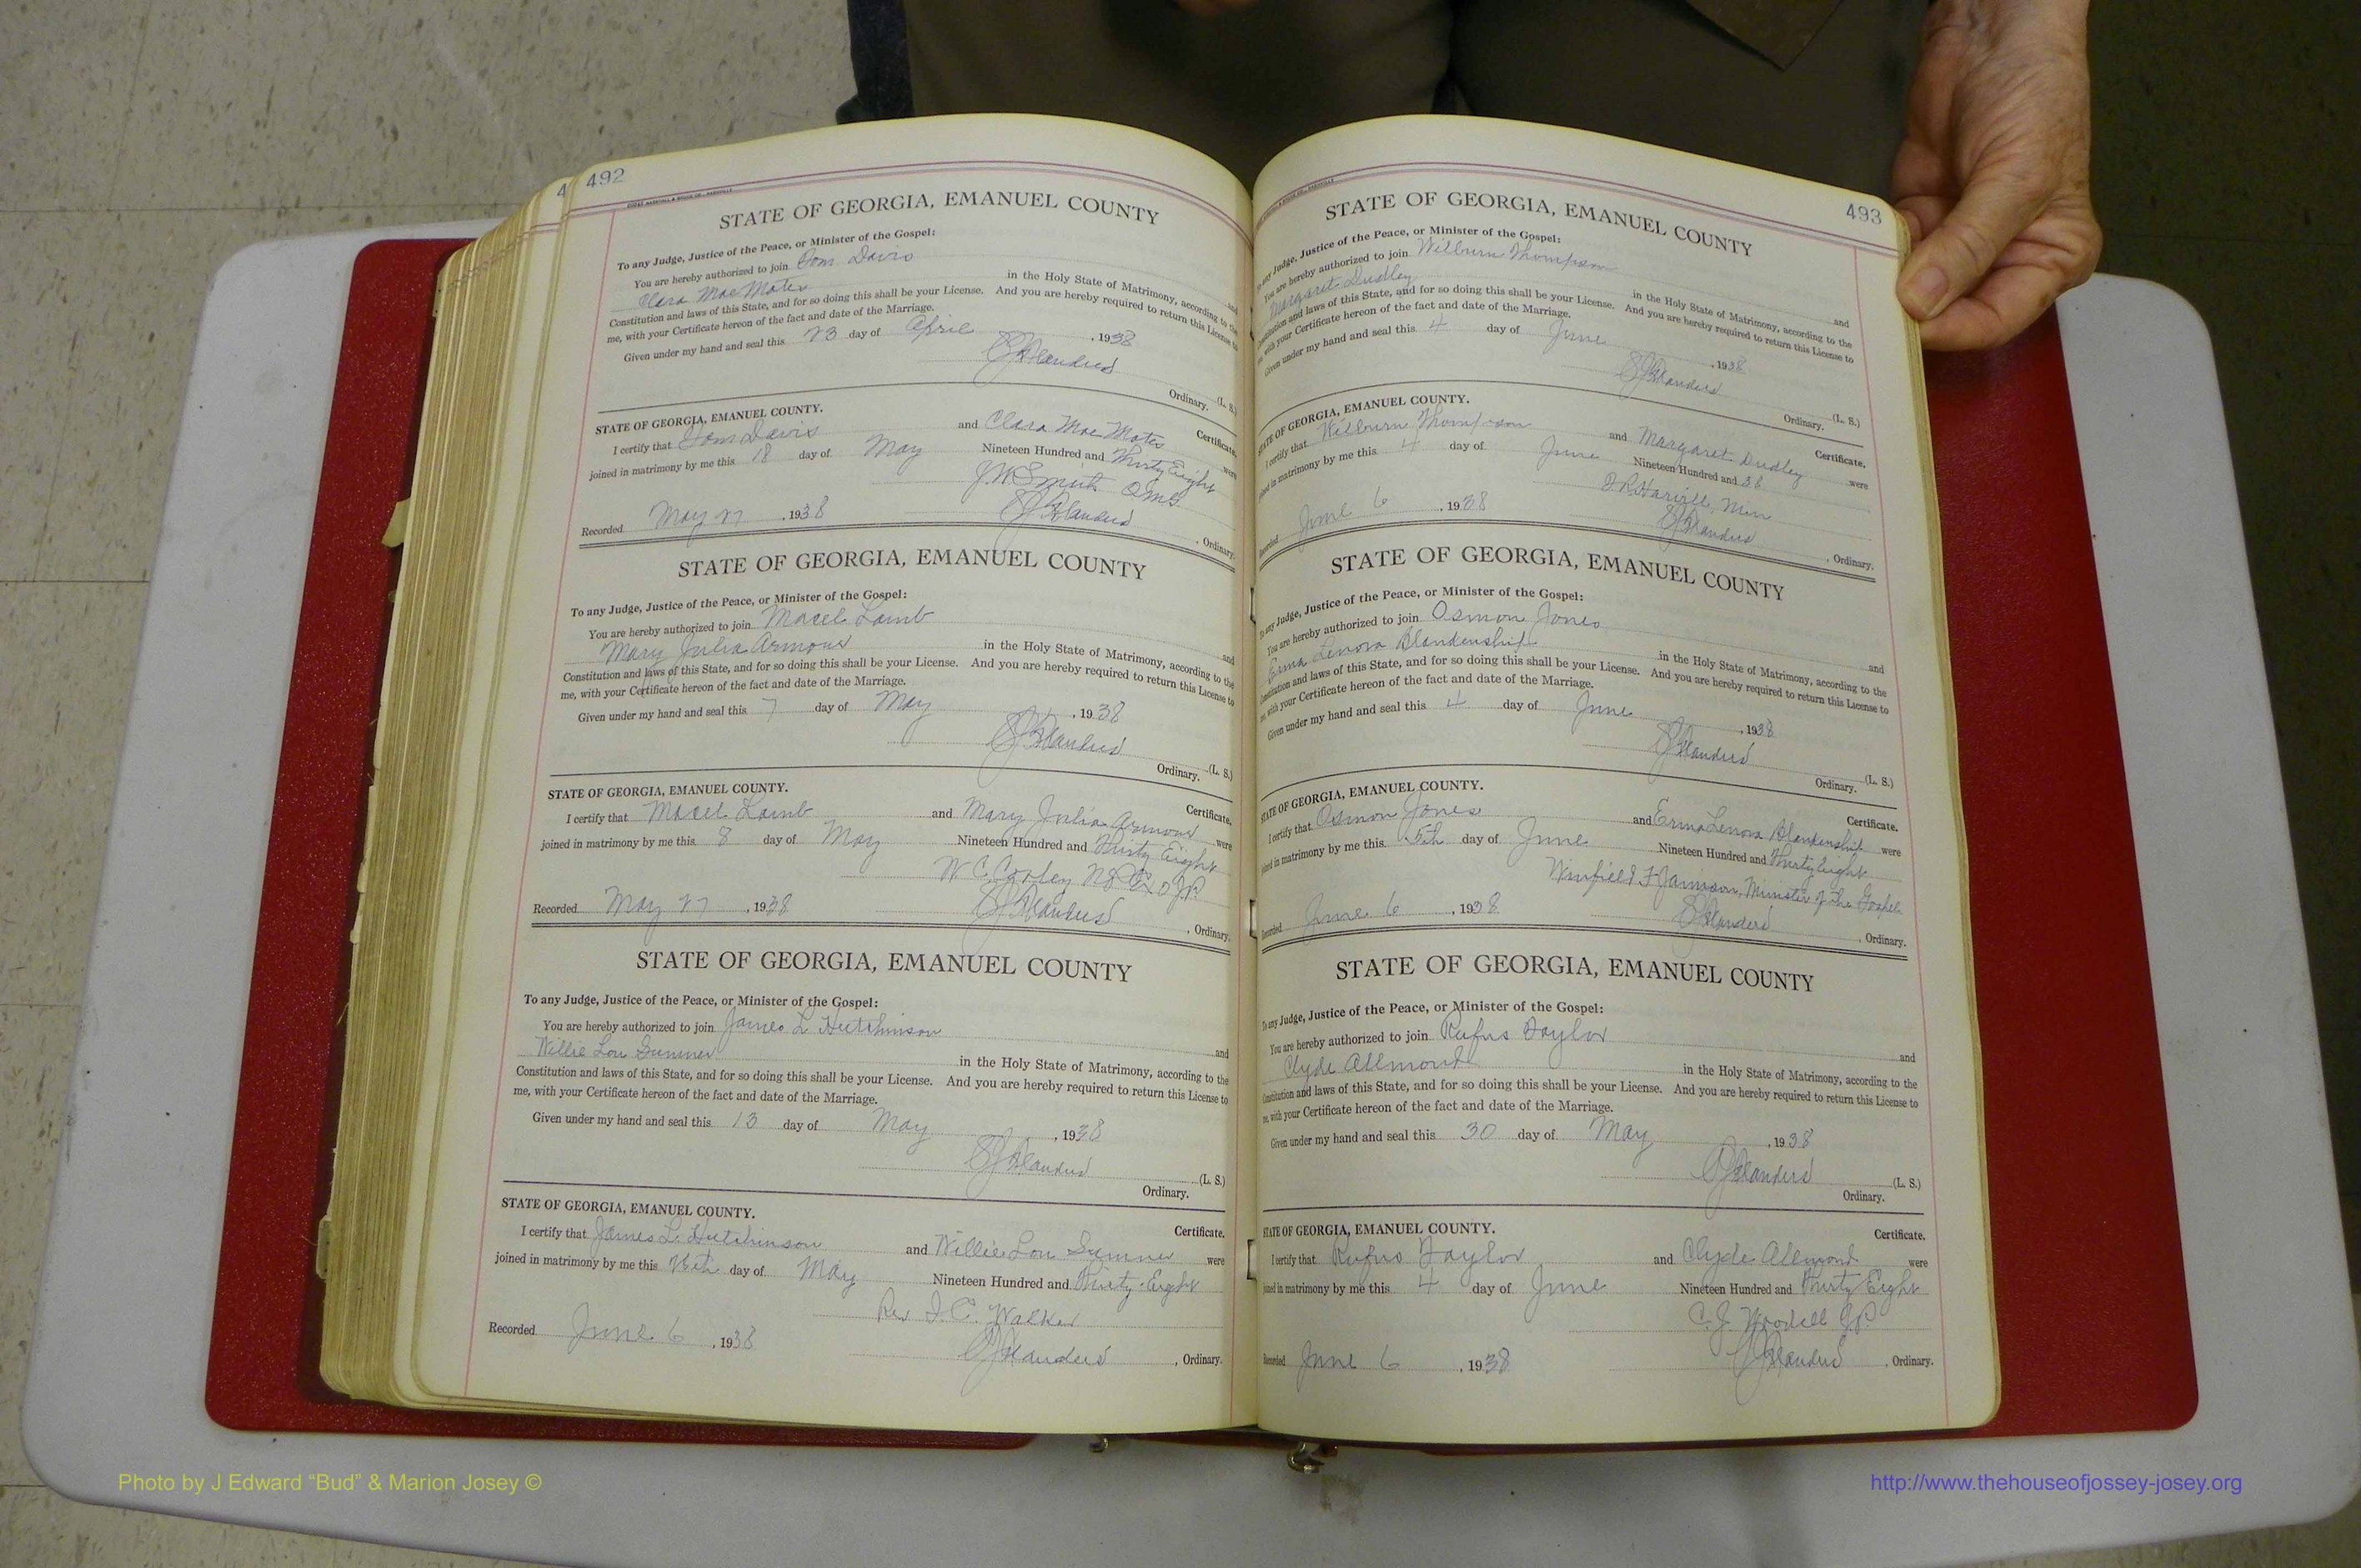 492
STATE OF GEORGIA, EMANUEL COUNTY
To any Judge, Justice of the Peace, or Minister of the Gospel:
You are hereby authorized to join Tom Davis and
Clara Mae Mates in the Holy State of Matrimony, according to the
Constitution and laws of this State, and for so doing this shall be your License. And you are hereby required to return this License to
me, with your Certificate hereon of the fact and date of the Marriage.
Given under my hand and seal this 23 day of April, 1938
(L. S.)
Ordinary.
STATE OF GEORGIA, EMANUEL COUNTY.
Certificate.
I certify that Tom Davis and Clara Mae Mates were
joined in matrimony by me this 18 day of May Nineteen Hundred and Thirty Eight
J.W. Smith O.M.G.
Recorded May 27, 1938, Ordinary.
STATE OF GEORGIA, EMANUEL COUNTY
To any Judge, Justice of the Peace, or Minister of the Gospel:
You are hereby authorized to join Macel Lamb and
Mary Julia Armour in the Holy State of Matrimony, according to the
Constitution and laws of this State, and for so doing this shall be your License. And you are hereby required to return this License to
me, with your Certificate hereon of the fact and date of the Marriage.
Given under my hand and seal this 7 day of May, 1938
(L. S.)
Ordinary.
STATE OF GEORGIA, EMANUEL COUNTY.
Certificate.
I certify that Macel Lamb and Mary Julia Armour were
joined in matrimony by me this 8 day of May Nineteen Hundred and Thirty Eight
W C
Recorded May 27, 1938, Ordinary.
STATE OF GEORGIA, EMANUEL COUNTY
To any Judge, Justice of the Peace, or Minister of the Gospel:
You are hereby authorized to join James L Hutchinson and
Willie Lou Sumner in the Holy State of Matrimony, according to the
Constitution and laws of this State, and for so doing this shall be your License. And you are hereby required to return this License to
me, with your Certificate hereon of the fact and date of the Marriage.
Given under my hand and seal this 13 day of May, 1938
(L. S.)
Ordinary.
STATE OF GEORGIA, EMANUEL COUNTY.
Certificate.
I certify that James L. Hutchinson and Willie Lou Sumner were
joined in matrimony by me this day of May Nineteen Hundred and Thirty-Eight
Rev I. C. Walker
Recorded June 6, 1938, Ordinary.
493
STATE OF GEORGIA, EMANUEL COUNTY
any Judge, Justice of the Peace, or Minister of the Gospel:
You are hereby authorized to join Wilburn Thompson and
Margaret Dudley in the Holy State of Matrimony, according to the
Constitution and laws of this State, and for so doing this shall be your License. And you are hereby required to return this License to
me, with your Certificate hereon of the fact and date of the Marriage.
Given under my hand and seal this 4 day of June, 1938
(L. S.)
Ordinary.
STATE OF GEORGIA, EMANUEL COUNTY.
Certificate.
I certify that Wilburn Thompson and Margaret Dudley were
joined in matrimony by me this 4 day of June Nineteen Hundred and 38
Harvill, Min
Recorded June 6, 1938, Ordinary.
STATE OF GEORGIA, EMANUEL COUNTY
To any Judge, Justice of the Peace, or Minister of the Gospel:
You are hereby authorized to join Osmon Jones and
Erma Lenora Blankenship in the Holy State of Matrimony, according to the
Constitution and laws of this State, and for so doing this shall be your License. And you are hereby required to return this License to
me, with your Certificate hereon of the fact and date of the Marriage.
Given under my hand and seal this 4 day of June, 1938
(L. S.)
Ordinary.
STATE OF GEORGIA, EMANUEL COUNTY.
Certificate.
I certify that Osmon Jones and Erma Lenora Blankenship were
joined in matrimony by me this 5th day of June Nineteen Hundred and Thirty Eight
Winfield F Jamison, Minister of the Gospel
Recorded June 6, 1938, Ordinary.
STATE OF GEORGIA, EMANUEL COUNTY
To any Judge, Justice of the Peace, or Minister of the Gospel:
You are hereby authorized to join Rufus Taylor and
Clyde Allmond in the Holy State of Matrimony, according to the
Constitution and laws of this State, and for so doing this shall be your License. And you are hereby required to return this License to
me, with your Certificate hereon of the fact and date of the Marriage.
Given under my hand and seal this 30 day of May, 1938
(L. S.)
Ordinary.
STATE OF GEORGIA, EMANUEL COUNTY.
Certificate.
I certify that Rufus Taylor and Clyde Allmond were
joined in matrimony by me this 4 day of June Nineteen Hundred and Thirty Eight
C. J. Woodell J.P.
Recorded June 6, 1938, Ordinary.
Photo by J Edward “Bud” & Marion Josey ©
http://www.thehouseofjossey-josey.org